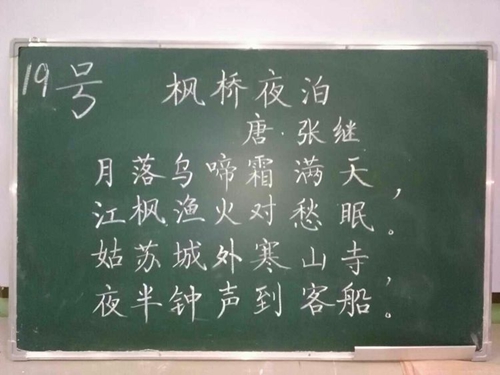 19号
枫桥夜泊
唐·张继
月落乌啼霜满天，
江枫渔火对愁眠。
姑苏城外寒山寺，
夜半钟声到客船。